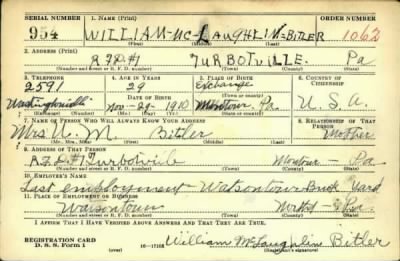 SERIAL NUMBER 1. NAME (Print)
954 WILLIAM-McLAUGHLIN-BITLER 1062
(First) (Middle) (Last)
2. ADDRESS (Print)
R.F.D.#1 TURBOTVILLE. Pa
(Number and street or R. F. D. number) (Town) (County) (State)
3. TELEPHONE 4. AGE IN YEARS 5. PLACE OF BIRTH 6. COUNTRY OF CITIZENSHIP
2591 29 Exchange
Washingtonville DATE OF BIRTH (Town or county)
Nov-29-1910 Montour, Pa. U.S.A.
(Exchange) (Number) (Mo.) (Day) (Yr.) (State or country)
7. NAME OF PERSON WHO WILL ALWAYS KNOW YOUR ADDRESS 8. RELATIONSHIP OF THAT PERSON
Mrs. M. Bitler Mother
(Mr., Mrs., Miss) (First) (Middle) (Last)
9. ADDRESS OF THAT PERSON
R.F.D.#1 Turbotville Montour - Pa
(Number and street or R. F. D. number) (Town) (County) (State)
10. EMPLOYER'S NAME
Last employment Watsontown Brick Yard
11. PLACE OF EMPLOYMENT OR BUSINESS
Watsontown Pa.
(Number and street or R. F. D. number) (Town) (County) (State)
I AFFIRM THAT I HAVE VERIFIED ABOVE ANSWERS AND THAT THEY ARE TRUE.
REGISTRATION CARD
D. S. S. Form 1 16-17105 William McLaughlin Bitler
(Registrant's signature)